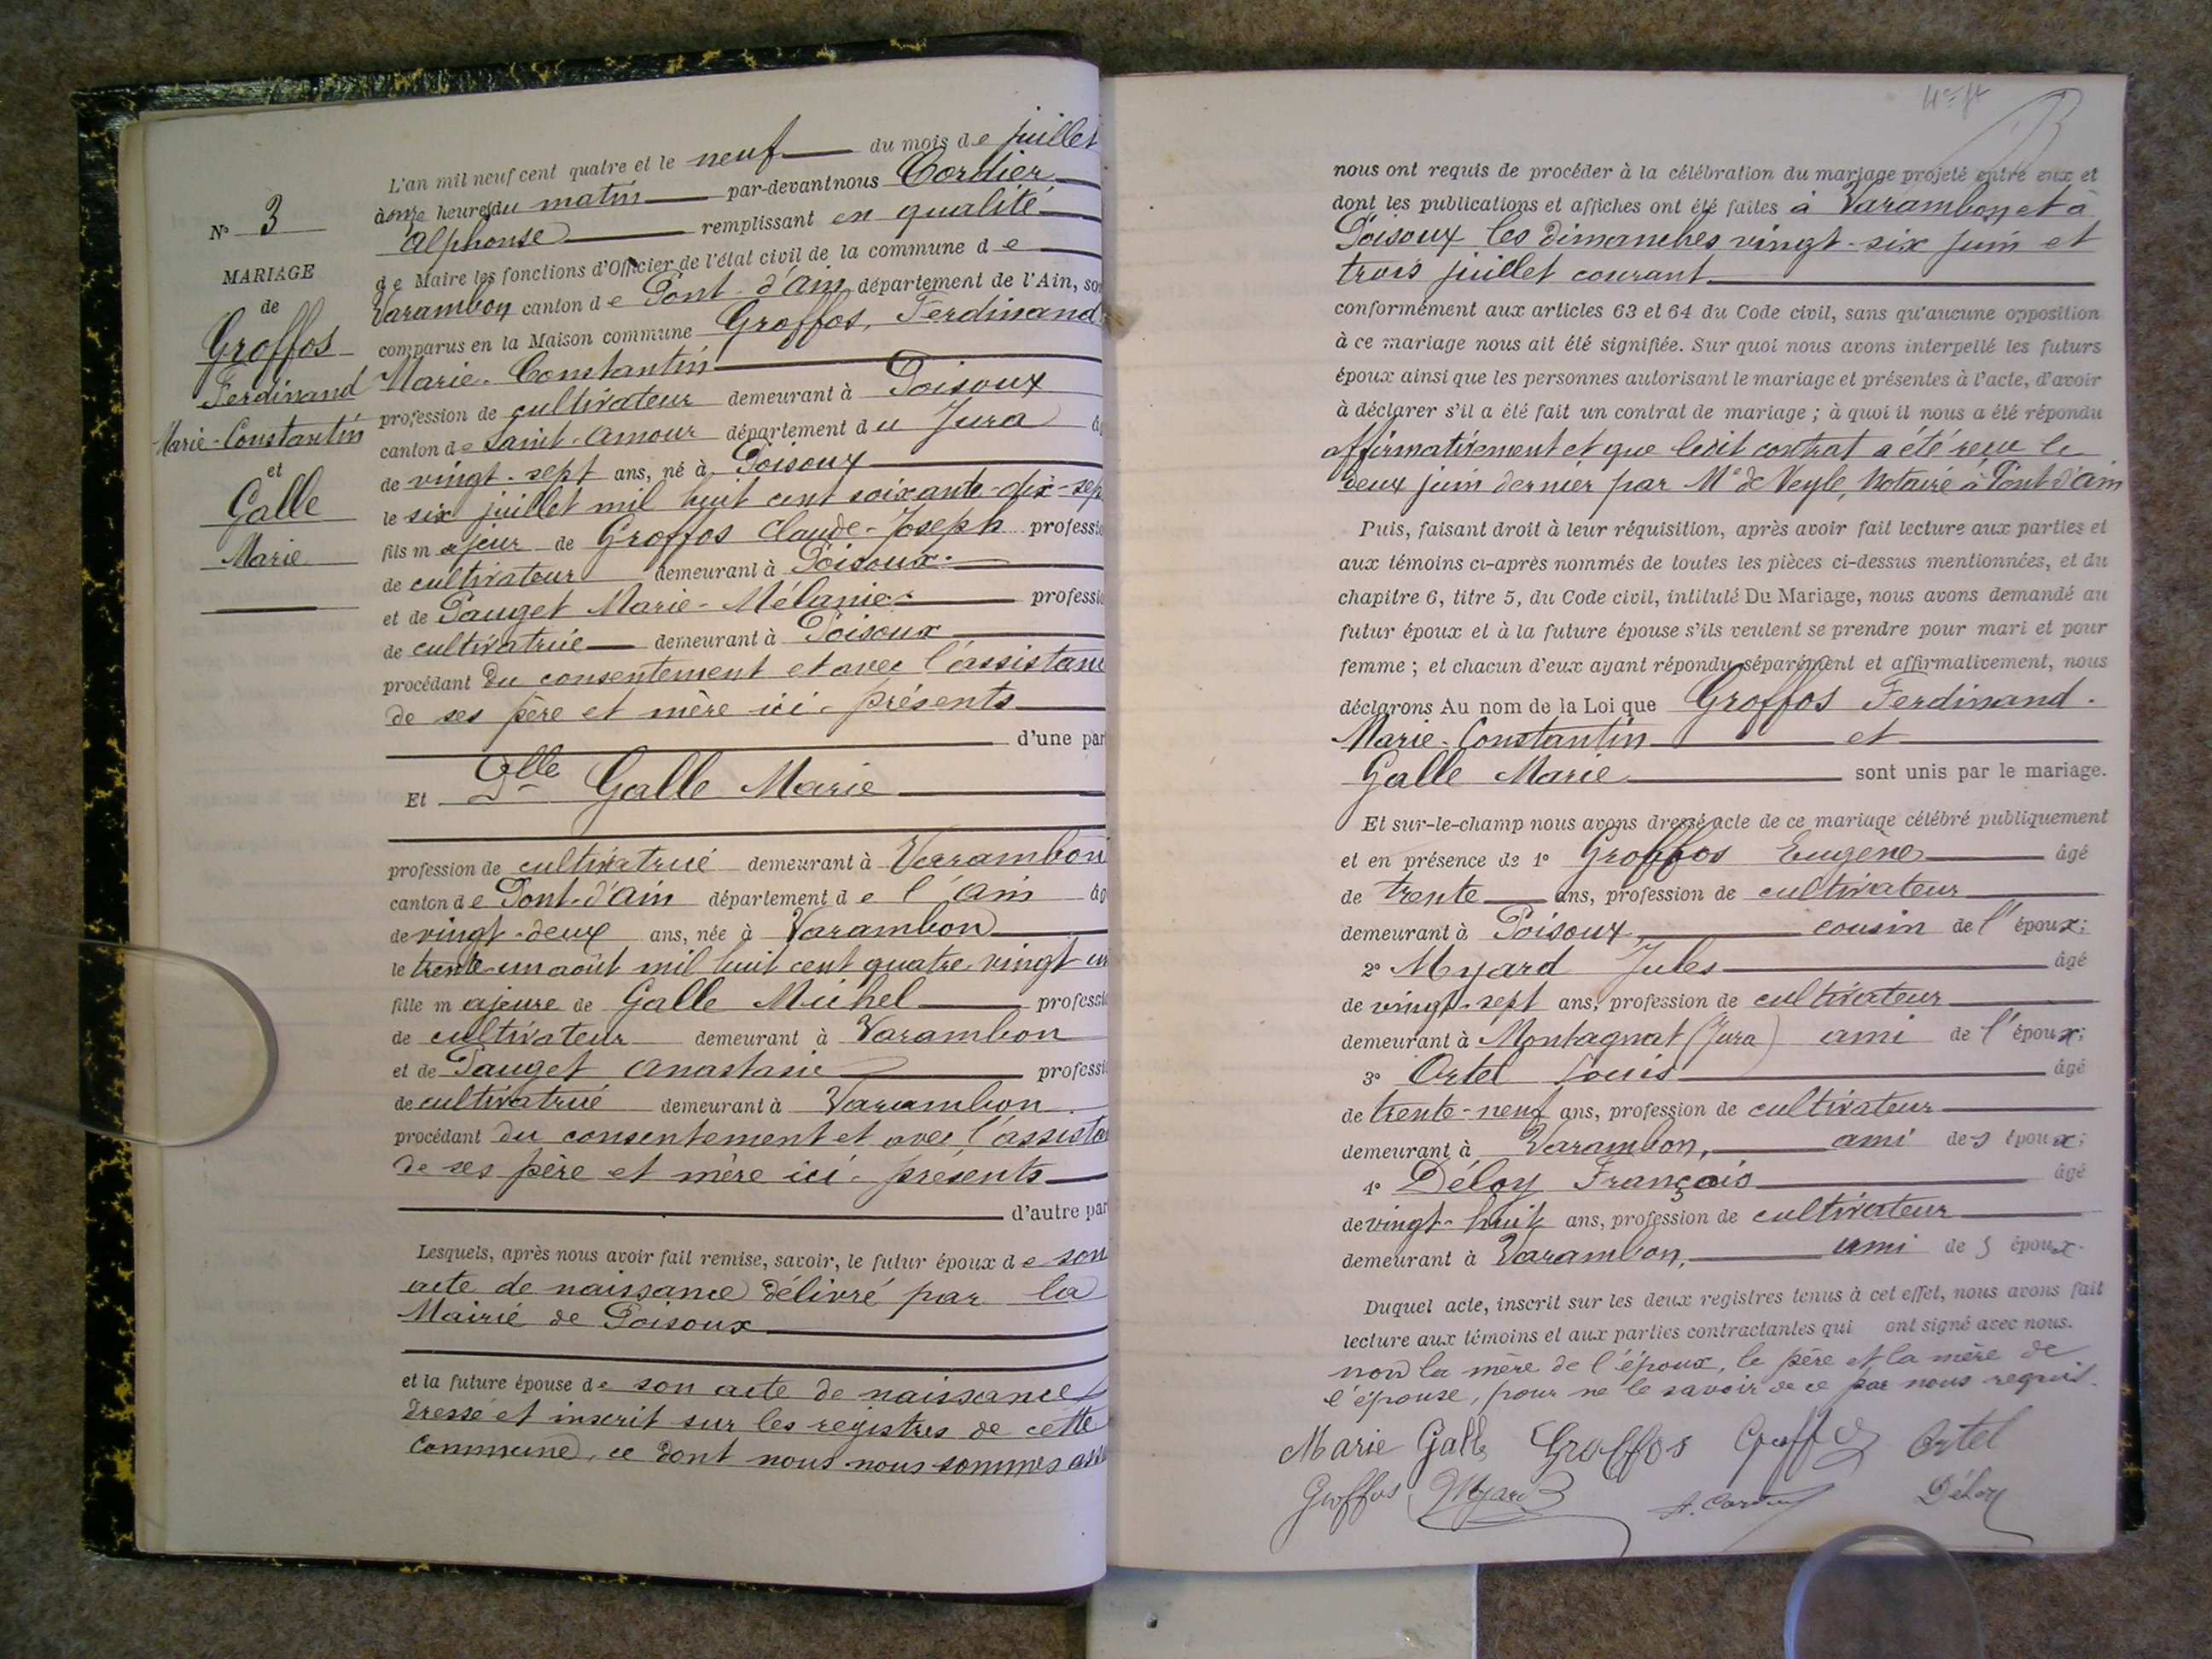 N° 3
MARIAGE
de
Groffos
Ferdinand
Marie-Constantin
et
Galle
Marie
L'an mil neuf cent quatre et le neuf du mois de juillet
à onze heures du matin par-devant nous Cordier
Alphonse remplissant en qualité
de Maire les fonctions d'Officier de l'état civil de la commune de
Varambon canton de Pont-d'Ain département de l'Ain, so
comparus en la Maison commune Groffos, Ferdinand
Marie-Constantin
profession de cultivateur demeurant à Poisoux
canton de Saint-Amour département du Jura
de vingt-sept ans, né à Poisoux
le six juillet mil huit cent soixante-dix-sep
fils majeur de Groffos Claude-Joseph professio
de cultivateur demeurant à Poisoux
et de Pauget Marie-Mélanie professio
de cultivatrice demeurant à Poisoux
procédant du consentement et avec l'assistanc
de ses père et mère ici-présents
d'une par
Et Dlle Galle Marie
profession de cultivatrice demeurant à Varambon
canton de Pont-d'Ain département de l'Ain âg
de vingt-deux ans, née à Varambon
le trente-un août mil huit cent quatre-vingt-un
fille majeure de Galle Michel professio
de cultivateur demeurant à Varambon
et de Pauget Anastasie professi
de cultivatrice demeurant à Varambon
procédant du consentement et avec l'assista
de ses père et mère ici-présents
d'autre par
Lesquels, après nous avoir fait remise, savoir, le futur époux de son
acte de naissance délivré par la
Mairie de Poisoux
et la future épouse de son acte de naissance
dressé et inscrit sur les registres de cette
commune, ce dont nous nous sommes ass
nous ont requis de procéder à la célébration du mariage projeté entre eux et
dont les publications et affiches ont été faites à Varambon et à
Poisoux les dimanches vingt-six juin et
trois juillet courant
conformément aux articles 63 et 64 du Code civil, sans qu'aucune opposition
à ce mariage nous ait été signifiée. Sur quoi nous avons interpellé les futurs
époux ainsi que les personnes autorisant le mariage et présentes à l'acte, d'avoir
à déclarer s'il a été fait un contrat de mariage ; à quoi il nous a été répondu
affirmativement et que ledit contrat a été reçu le
deux juin dernier par Me de Veyle, Notaire à Pont-d'Ain
Puis, faisant droit à leur réquisition, après avoir fait lecture aux parties et
aux témoins ci-après nommés de toutes les pièces ci-dessus mentionnées, et du
chapitre 6, titre 5, du Code civil, intitulé Du Mariage, nous avons demandé au
futur époux et à la future épouse s'ils veulent se prendre pour mari et pour
femme ; et chacun d'eux ayant répondu séparément et affirmativement, nous
déclarons Au nom de la Loi que Groffos Ferdinand-
Marie-Constantin et
Galle Marie sont unis par le mariage.
Et sur-le-champ nous avons dressé acte de ce mariage célébré publiquement
et en présence de 1° Groffos Eugène âgé
de trente ans, profession de cultivateur
demeurant à Poisoux, cousin de l'époux;
2° Myard Jules âgé
de vingt-sept ans, profession de cultivateur
demeurant à Montagnat (Jura) ami de l'époux;
3° Ortel Louis âgé
de trente-neuf ans, profession de cultivateur
demeurant à Varambon, ami des époux;
4° Déloy François âgé
de vingt-huit ans, profession de cultivateur
demeurant à Varambon, ami des époux.
Duquel acte, inscrit sur les deux registres tenus à cet effet, nous avons fait
lecture aux témoins et aux parties contractantes qui ont signé avec nous.
non la mère de l'époux, le père et la mère de
l'épouse, pour ne le savoir de ce par nous requis.
Marie Galle Groffos Groffos Ortel
Groffos Myard A. Cordier Déloy